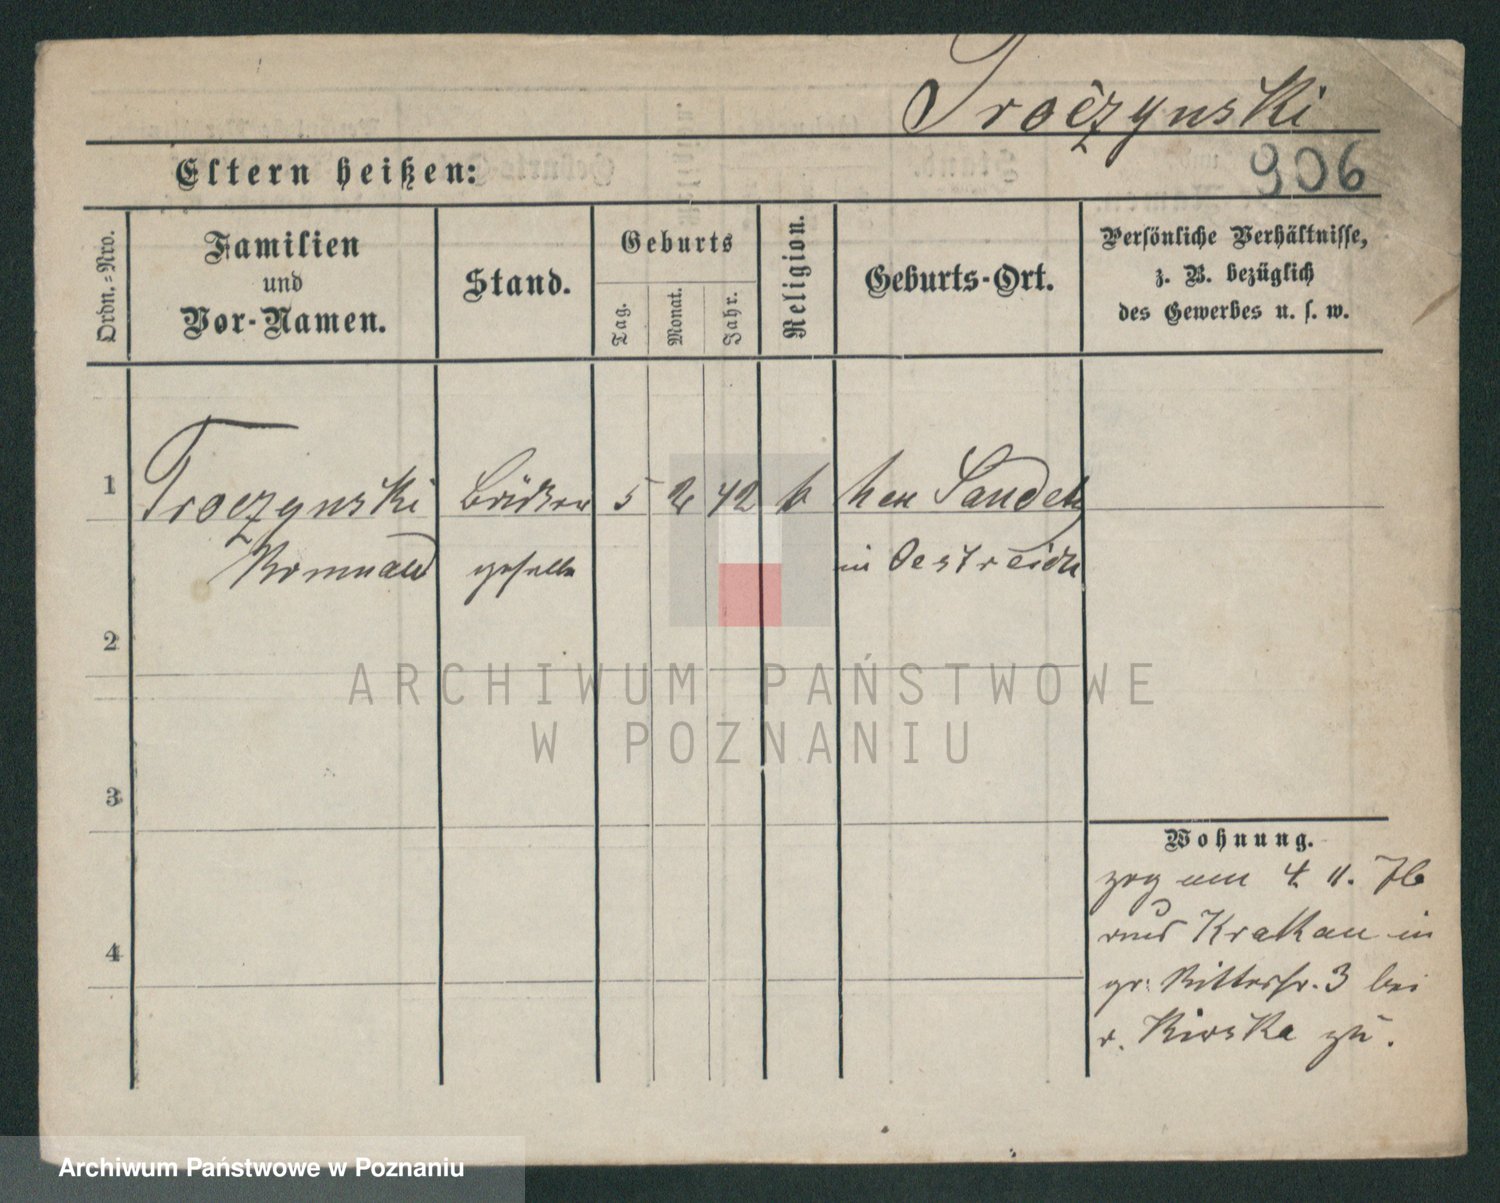 Troczynski
906
Eltern heißen:
Ordn.=Nro.
Familien
und
Vor-Namen.
Stand.
Geburts
Tag.
Monat.
Jahr.
Religion.
Geburts-Ort.
Persönliche Verhältnisse,
z. B. bezüglich
des Gewerbes u. s. w.
1
Troczynski
5 2 42
Sandetz
Romuald
geselle
in Oestreich
2
3
4
Wohnung.
zog am 4 11. 76
aus Krakau in
gr. Ritterstr. 3 bei
v. Kirska zu.
ARCHIWUM PAŃSTWOWE
W POZNANIU
Archiwum Państwowe w Poznaniu